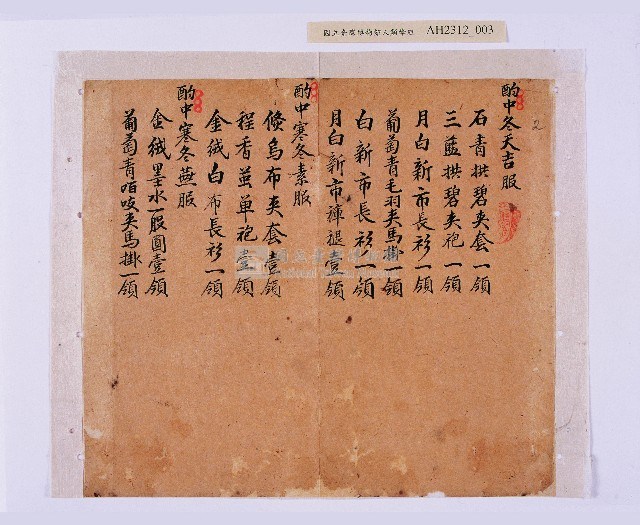 AH2312_003
2
酌中冬天吉服
石青拱碧夾套一領
三藍拱碧夾袍一領
月白新市長衫一領
葡萄青毛羽夾馬掛一領
白新市長衫一領
月白新市褲褪壹領
酌中寒冬素服
倏烏布夾套壹領
程香茧单袍壹領
金絨白布長衫一領
酌中寒冬燕服
金絨墨水一股圓壹領
葡萄青咟咬夾馬掛一領